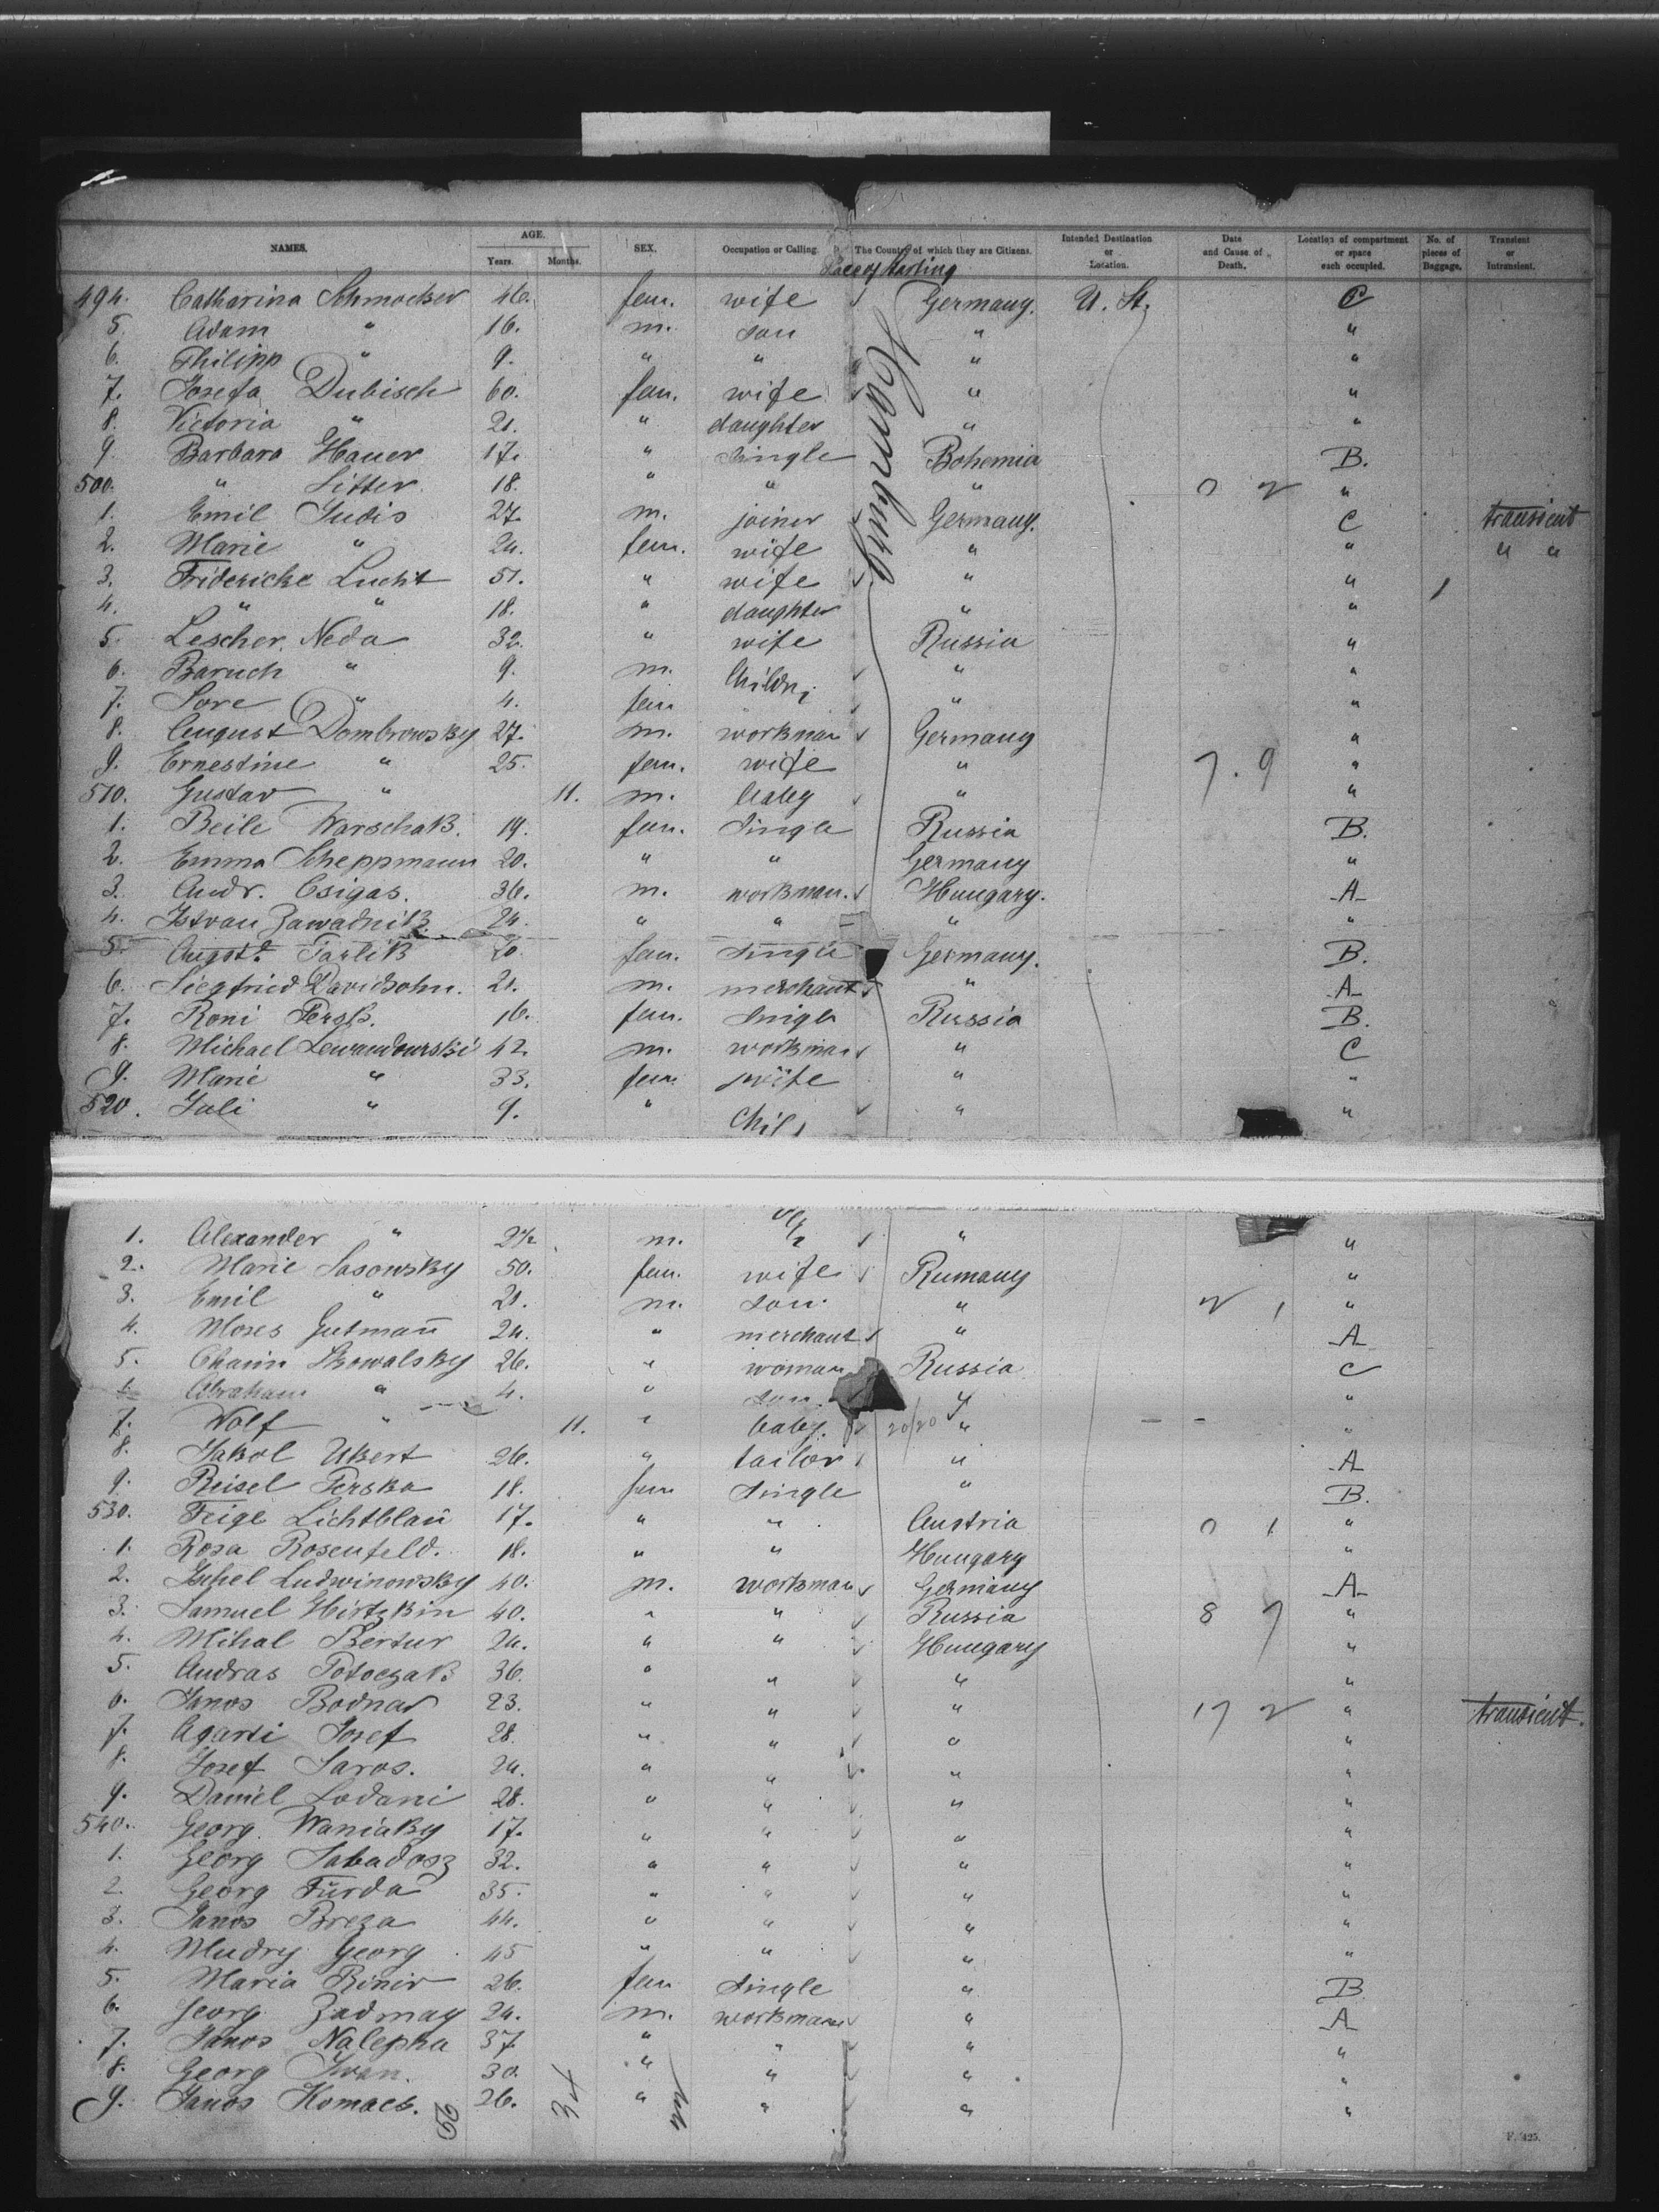 NAMES. AGE. Years. Months. SEX. Occupation or Calling. The Country of which they are Citizens. Intended Destination or Location. Date and Cause of Death. Location of compartment or space each occupied. No. of pieces of Baggage. Transient or Intransient.
Place of Starting
Hamburg
494. Catharina Schmocker 46. fem. wife Germany. U. St. C
5. Adam " 16. m. son " "
6. Philipp " 9. " " " "
7. Josefa Dubisch 60. fem. wife " "
8. Victoria " 21. " daughter " "
9. Barbara Hauer 17. " Single Bohemia B.
500. " Sitter 18. " " " 0 2 "
1. Emil Judis 27. m. joiner Germany. C transient
2. Marie " 24. fem. wife " " " "
3. Fridericke Lucht 51. " wife " " 1
4. " " 18. " daughter " "
5. Lescher Neda 32. " wife Russia "
6. Baruch " 9. m. Childr. " "
7. Sore " 4. fem " "
8. August Dombrowsky 27. m. workman Germany "
9. Ernestine " 25. fem. wife " 7. 9 "
510. Gustav " 11. m. baby " "
1. Beile Warschak. 19. fem. Single Russia B.
2. Emma Scheppmann 20. " " Germany "
3. Andr. Csigas. 36. m. workman. Hungary. A
4. Istvan Zawadnik 24. " " " "
5. August. Tarlik 20. fem. Single Germany. B.
6. Siegfried Davidsohn. 21. m. merchant " A
7. Roni Persk. 16. fem. Single Russia B.
8. Michael Lewandowski 42. m. workman " C
9. Marie " 33. fem wife " "
520. Juli " 9. " Chil " "
1. Alexander " 2½ m. " "
2. Marie Sasowsky 50. fem. wife Rumany "
3. Emil " 21. m. son. " 2 1 "
4. Moses Gutmañ 24. " merchant " A
5. Chaim Kowalsky 26. " woman Russia C
6. Abraham " 4. " son. "
7. Wolf " 11. " baby. 20/20 " "
8. Jakob Ukert 26. " tailor " A
9. Reisel Perska 18. fem Single " B.
530. Feige Lichtblau 17. " " Austria 0 1 "
1. Rosa Rosenfeld. 18. " " Hungary "
2. Juhel Ludwinowsky 40. m. workman Germany A
3. Samuel Hirtzkin 40. " " Russia 8 7 "
4. Mihal Bertur 24. " " Hungary "
5. Andras Potoczak 36. " " " "
6. Janos Bodnar 23. " " " 17 2 " transient.
7. Agarti Josef 28. " " " "
8. Josef Saros. 24. " " " "
9. Daniel Lodani 28. " " " "
540. Georg Waniaky 17. " " " "
1. Georg Sabadosz 32. " " " "
2. Georg Furda 35. " " " "
3. Janos Breza 44. " " " "
4. Mudry Georg 45 " " " "
5. Maria Binir 26. fem Single " B
6. Georg Zadmay 24. m. workman " A
7. Janos Nalepka 37. " " " "
8. Georg Iwan. 30. " " " "
9. Janos Komacs. 26. " " " "
34
F. 425.